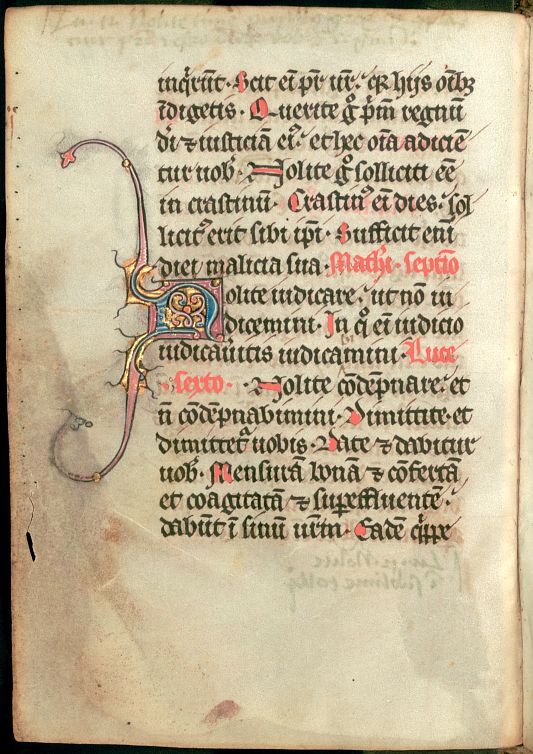 inq̃rũt. Scit eĩ pr̃ vr̃. q̃ hijs oĩbꝫ
ĩdigetis. Querite gͦ pͥm regnũ
dĩ ⁊ iusticiã eiꝰ. et hec oĩa adiciẽ
tur uob̃. Nolite gͦ solliciti eẽ
in crastinũ. Crastinꝰ eĩ dies. sol
licitꝰ erit sibi ip̃i. Sufficit enĩ
diei malicia sua. Mathi. septĩo
Nolite iudicare. ut nõ iu
dicemini. In qͦ eĩ iudicio
iudicaũitis iudicamini. Luce
.sexto. Nolite cõdẽpnare. et
ñ cõdẽpnabimini. Dimittite. et
dimittetᷣ uobis. Date ⁊ dabitur
uob̃. Mensurã bonã ⁊ cõfertã
et coagitatã ⁊ suꝑeffluentẽ.
dabũt ĩ sinũ urm̃. Eadẽ q̃ꝑpe